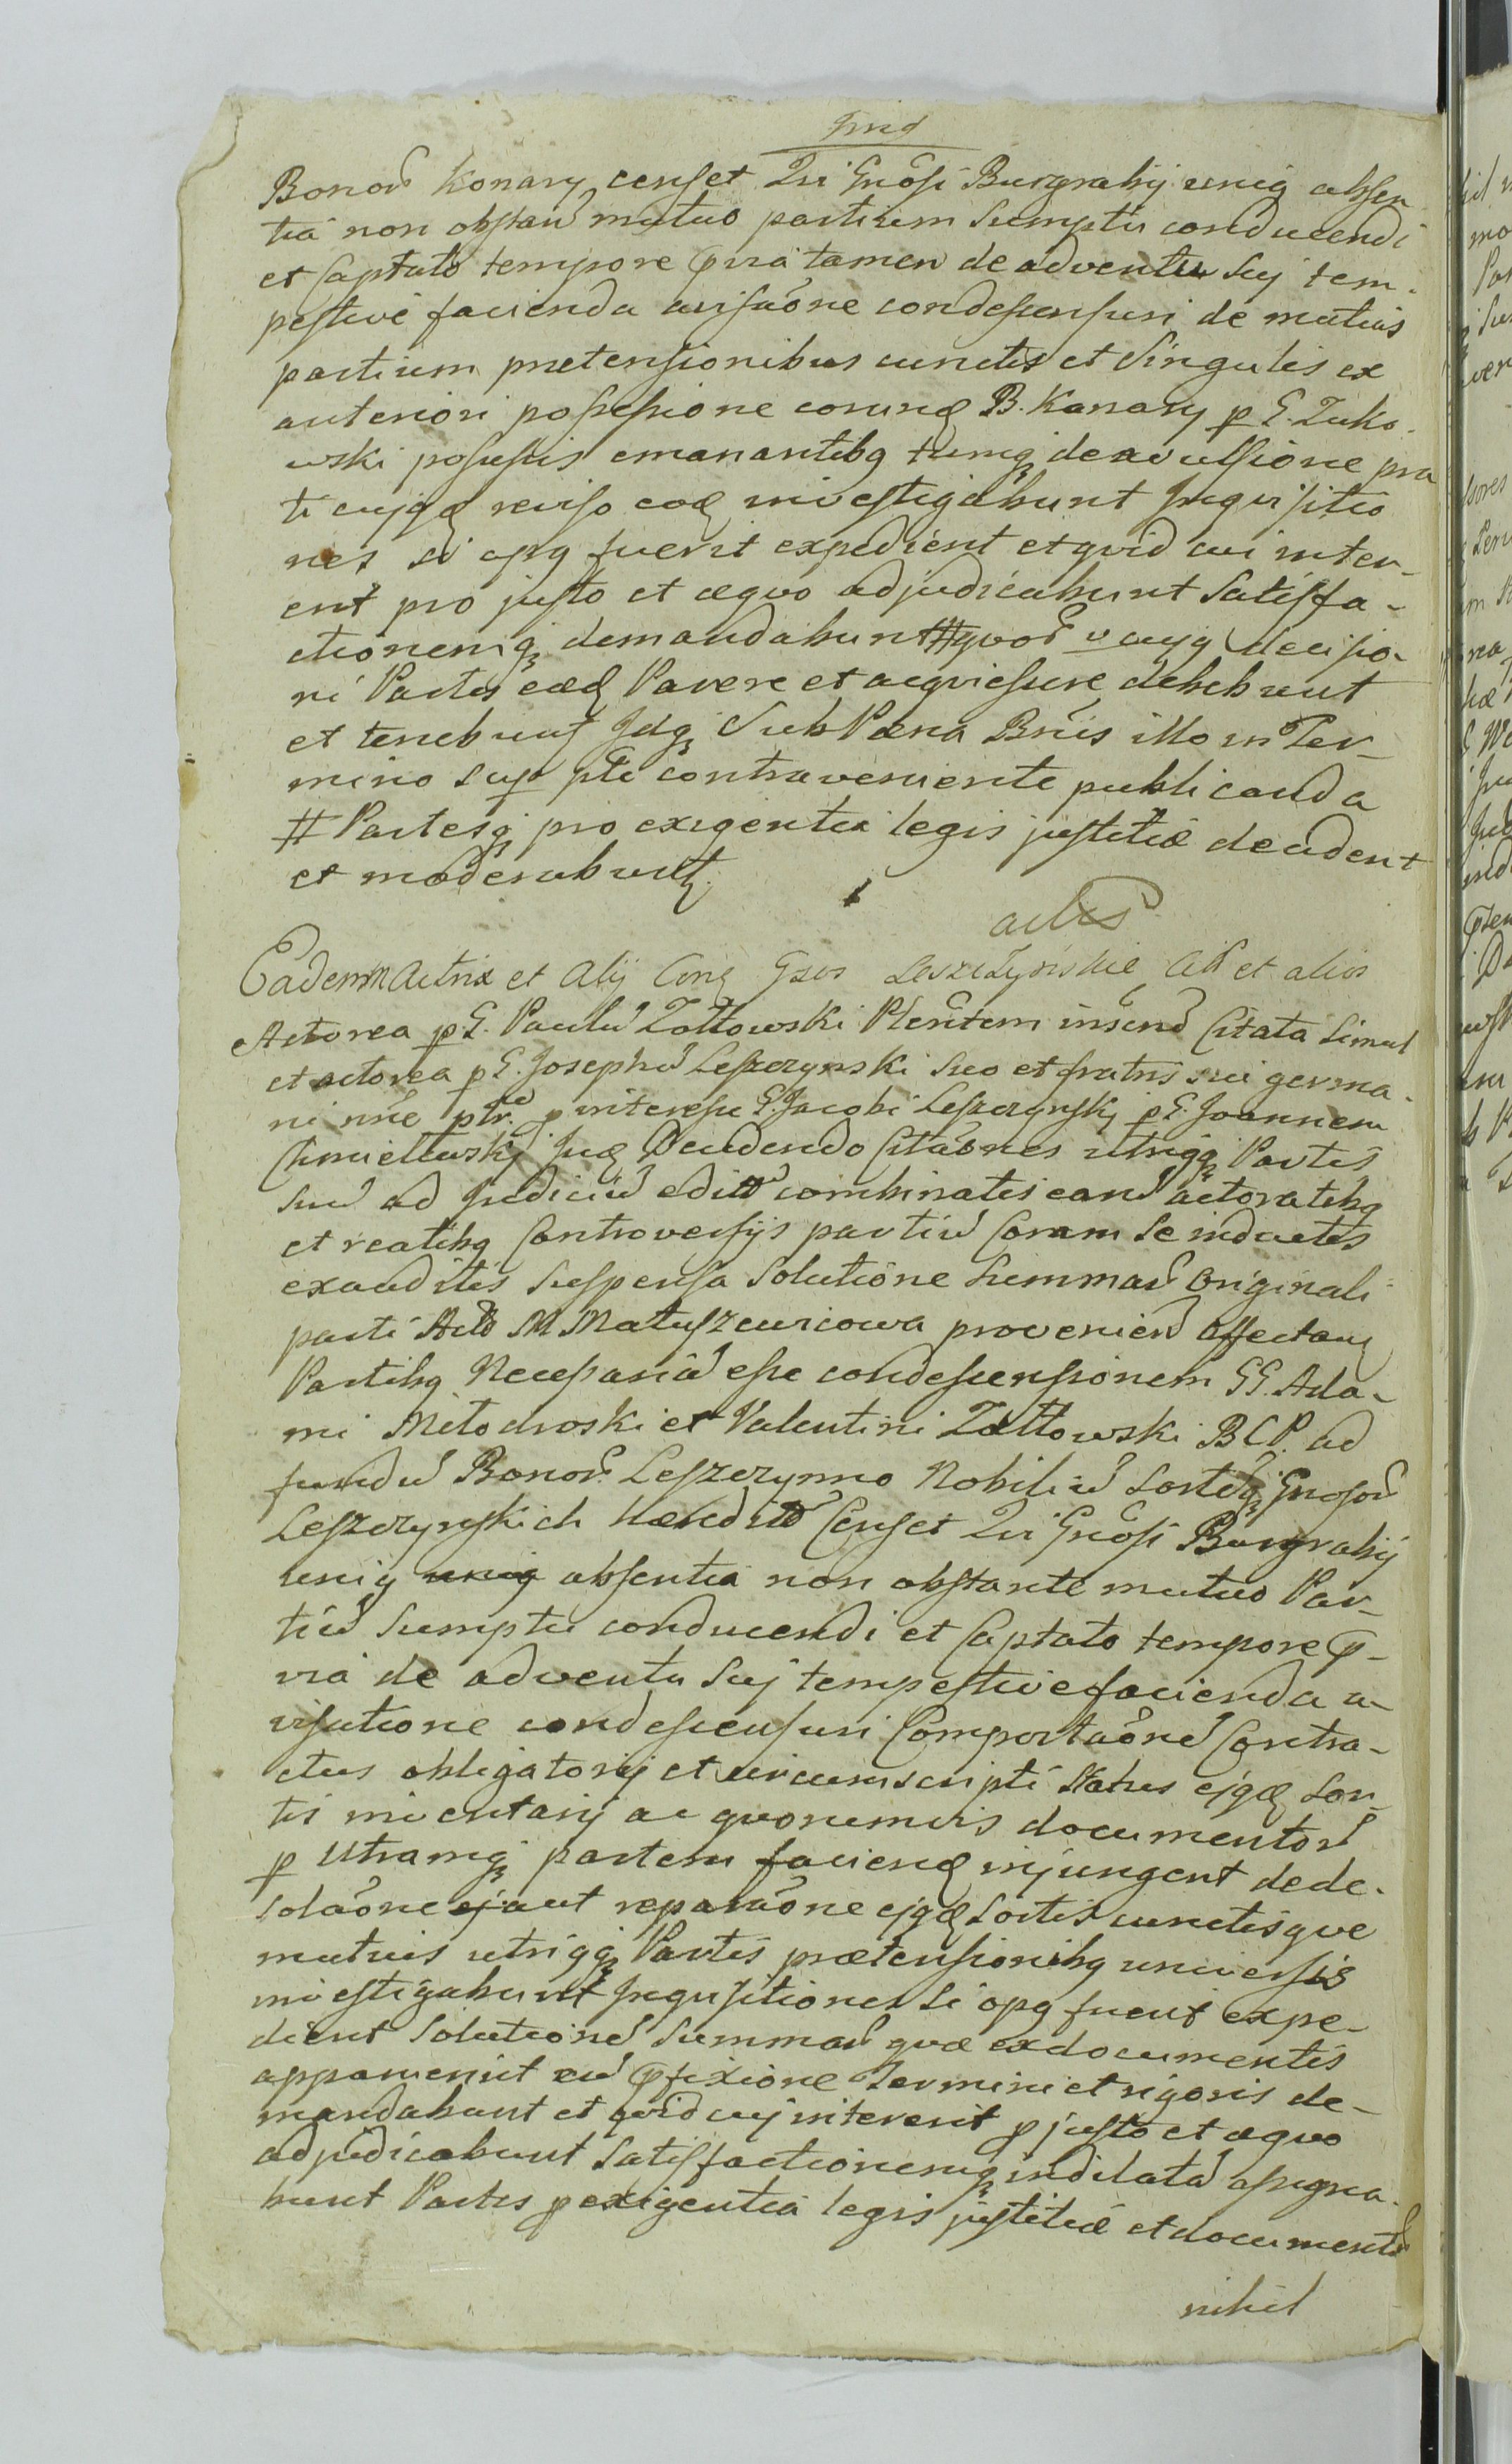 Bonor Konary censet Qui Gnosi Burgrabij unig absen
tia non obstan mutuo partium sumptu conducendi
et Captato tempore pvia tamen de adventu suj tem-
pestive facienda avisaone condescensuri de mutuis
partium pretensionibus cunctis et Singulis ex
anteriori possessione corund B. Konary p G. Zuko-
wski possessis emanantibq tumq de avulsione pra
ti cujqd reviso eod investigabunt Inqvisitio
nes si opq fuerit expedient et qvid cui inter-
ent pro justo et aeqvo adjudicabunt Satisfa-
ctionemq demandabunt # qvor cujq decisio-
ni Partes eaed Parere et acqviescere debebunt
et tenebunt Idq Sub Paena Bnis illo in Ter-
mino sup pte contraveniente publicanda
# Partesq pro exigentia legis justitiae decident
et moderabunt.
Eadem M Actrix et Alij Conq Gsos Leszczynskie et alios
Actorea p G. Paulu Zoltowski Plentem insend Citata Simul
et actorea p G. Josephu Leszczynski suo et fratris sui germa-
ni nne ptr. p interesse G. Jacobi Leszczynskj p G. Joannem
Chmielewskj Jud Decidendo Citaones utriqq Partis
suu ad Judiciu edit combinatis earu actoratibq
et reatibq Controversijs partiu Coram Se inductis
exauditis suspensa Solutione Summar Originali
parti M Matuszewicowa provenien affectan
Partibq Necessaria esse condescensionem GG. Ada-
mi et Valentini Zoltowski B C P. ad
fundu Bonor Leszczynno Nobiliu Sortisq Gnosor
Leszczynskich Haered Censet Qui Gnosi Burgrabij
uniq absentia non obstante mutuo Par-
tiu Sumptu conducendi et Captato tempore p-
via de adventu Suj tempestive facienda a-
visatione condescensuri Comportaone Contra-
ctus obligatorij et circumscripti Status ejqd Sor-
tis inventarij ac qvorumvis documentor
p Utramq partem faciend injungent de de-
solaone ejaut reparaone ejqd Sortis cunctisqve
mutuis utriqq Partis praetensionibq universis
investigabunt Inqvisitiones si opq fuerit expe-
dient Solutione Summar qvae ex documentis
apparuerint cu pfixione Termini et rigoris de-
mandabunt et qvid cuj intererit p justo et aeqvo
adjudicabunt Satisfactionemq indilata assigna-
bunt Partes p exigentia legis justitiae et document
nihil